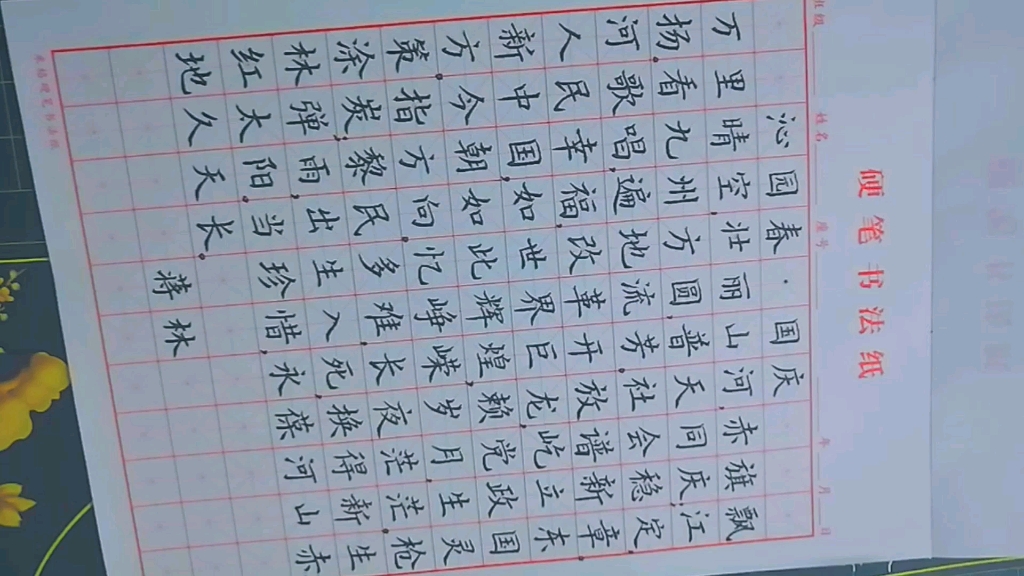 硬笔书法纸
班级 姓名 座号 年 月 日
沁园春·国庆
万里晴空,壮丽山河,赤旗飘
扬。看九州方圆,普天同庆;江
河歌唱,遍地流芳。社会稳定,
人民幸福,改革开放谱新章。
新中国,如世界巨龙,屹立东
方。今朝如此辉煌,赖党政国
策指方向。忆峥嵘岁月,生灵
涂炭;黎民多难,长夜茫茫。枪
林弹雨,出生入死,换得新生
红太阳。当珍惜,永葆河山赤
地久天长。
蒋林